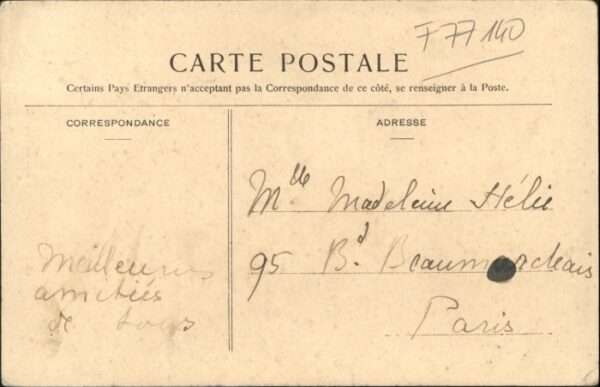 F 77 140
CARTE POSTALE
Certains Pays Etrangers n'acceptent pas la Correspondance de ce côté, se renseigner à la Poste.
CORRESPONDANCE
ADRESSE
Mlle Madeleine Hélie
95 Bd Beaumarchais
Paris
Meilleures
amitiés
de tous